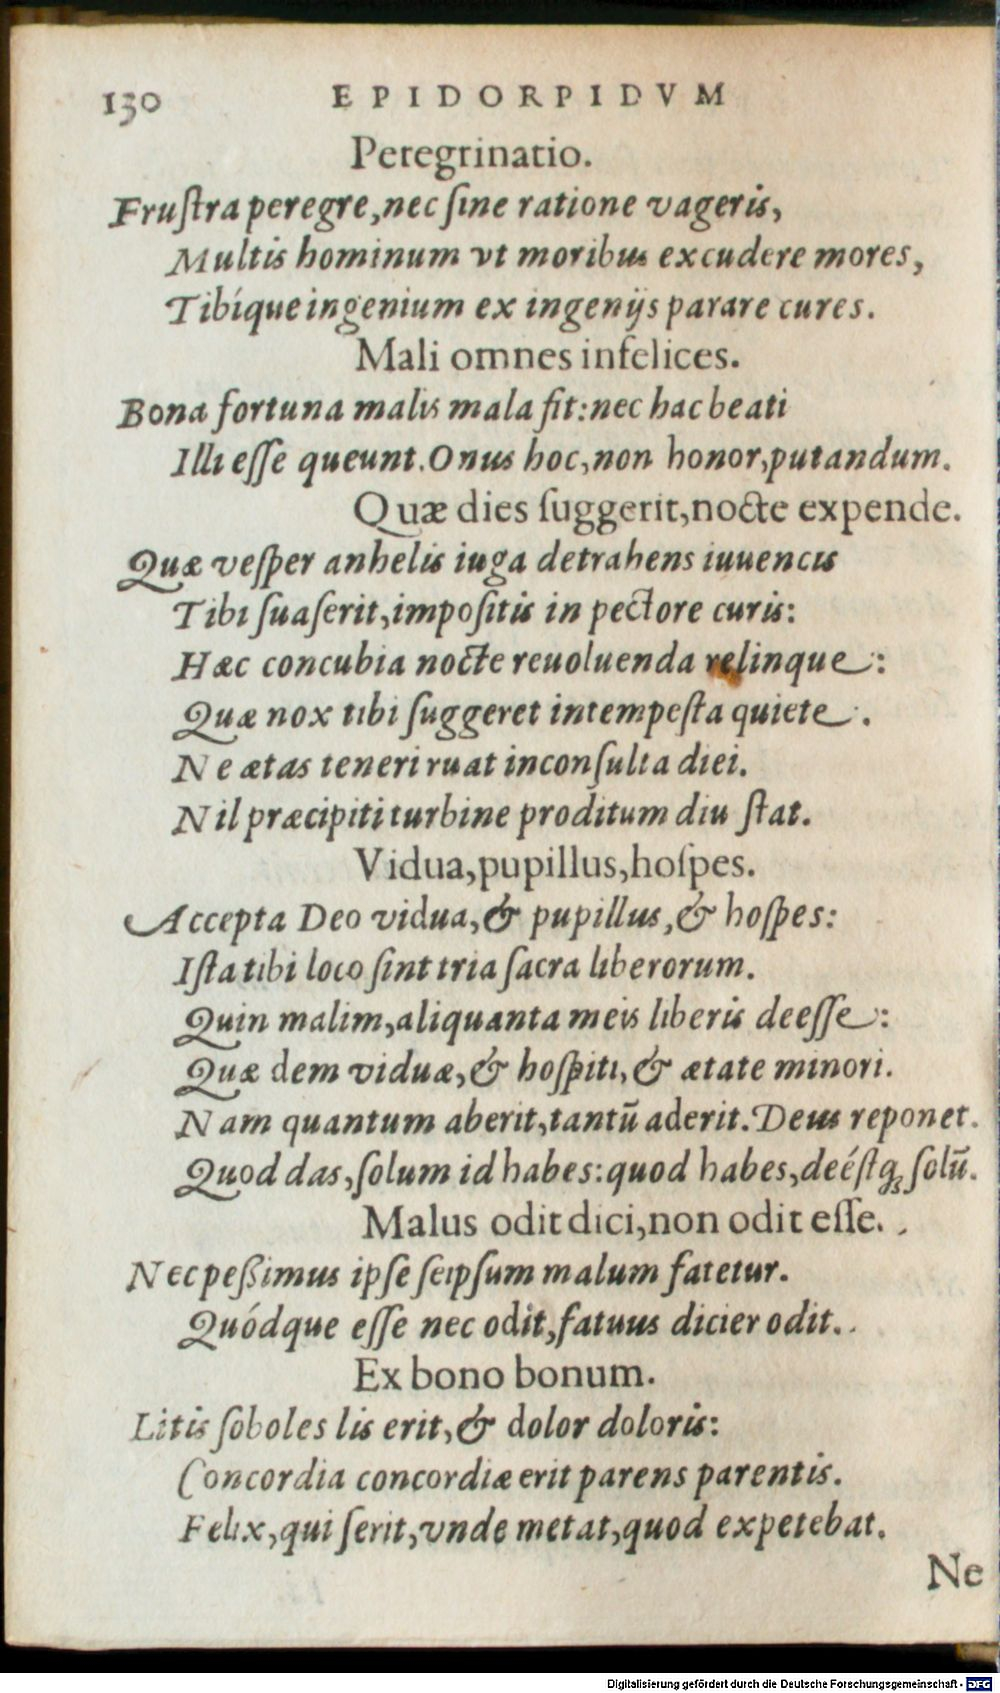 130 EPIDORPIDVM
Peregrinatio.
Fruſtra peregre, nec ſine ratione vageris,
Multis hominum vt moribus excudere mores,
Tibíque ingenium ex ingenijs parare cures.
Mali omnes infelices.
Bona fortuna malis mala fit: nec hac beati
Illi eſſe queunt. Onus hoc, non honor, putandum.
Quæ dies ſuggerit, nocte expende.
Quæ veſper anhelis iuga detrahens iuuencis
Tibi ſuaſerit, impoſitis in pectore curis:
Hæc concubia nocte reuoluenda relinque:
Quæ nox tibi ſuggeret intempeſta quiete.
Ne ætas teneri ruat inconſulta diei.
Nil præcipiti turbine proditum diu ſtat.
Vidua, pupillus, hoſpes.
Accepta Deo vidua, & pupillus, & hoſpes:
Iſta tibi loco ſint tria ſacra liberorum.
Quin malim, aliquanta meis liberis deeſſe:
Quæ dem viduæ, & hoſpiti, & ætate minori.
Nam quantum aberit, tantū aderit. Deus reponet.
Quod das, ſolum id habes: quod habes, deéſtq; ſolū.
Malus odit dici, non odit eſſe.
Nec peßimus ipſe ſeipſum malum fatetur.
Quódque eſſe nec odit, fatuus dicier odit.
Ex bono bonum.
Litis ſoboles lis erit, & dolor doloris:
Concordia concordiæ erit parens parentis.
Felix, qui ſerit, vnde metat, quod expetebat.
Ne
Digitalisierung gefördert durch die Deutsche Forschungsgemeinschaft - DFG